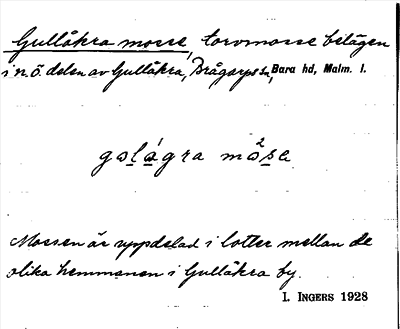 Gullåkra mosse, torvmosse belägen
i n. ö. delen av Gullåkra, Brågarps sn, Bara hd, Malm. l.
gɷlágra mɷ̀sɐ
Mossen är uppdelad i lotter mellan de
olika hemmanen i Gullåkra by.
I. INGERS 1928